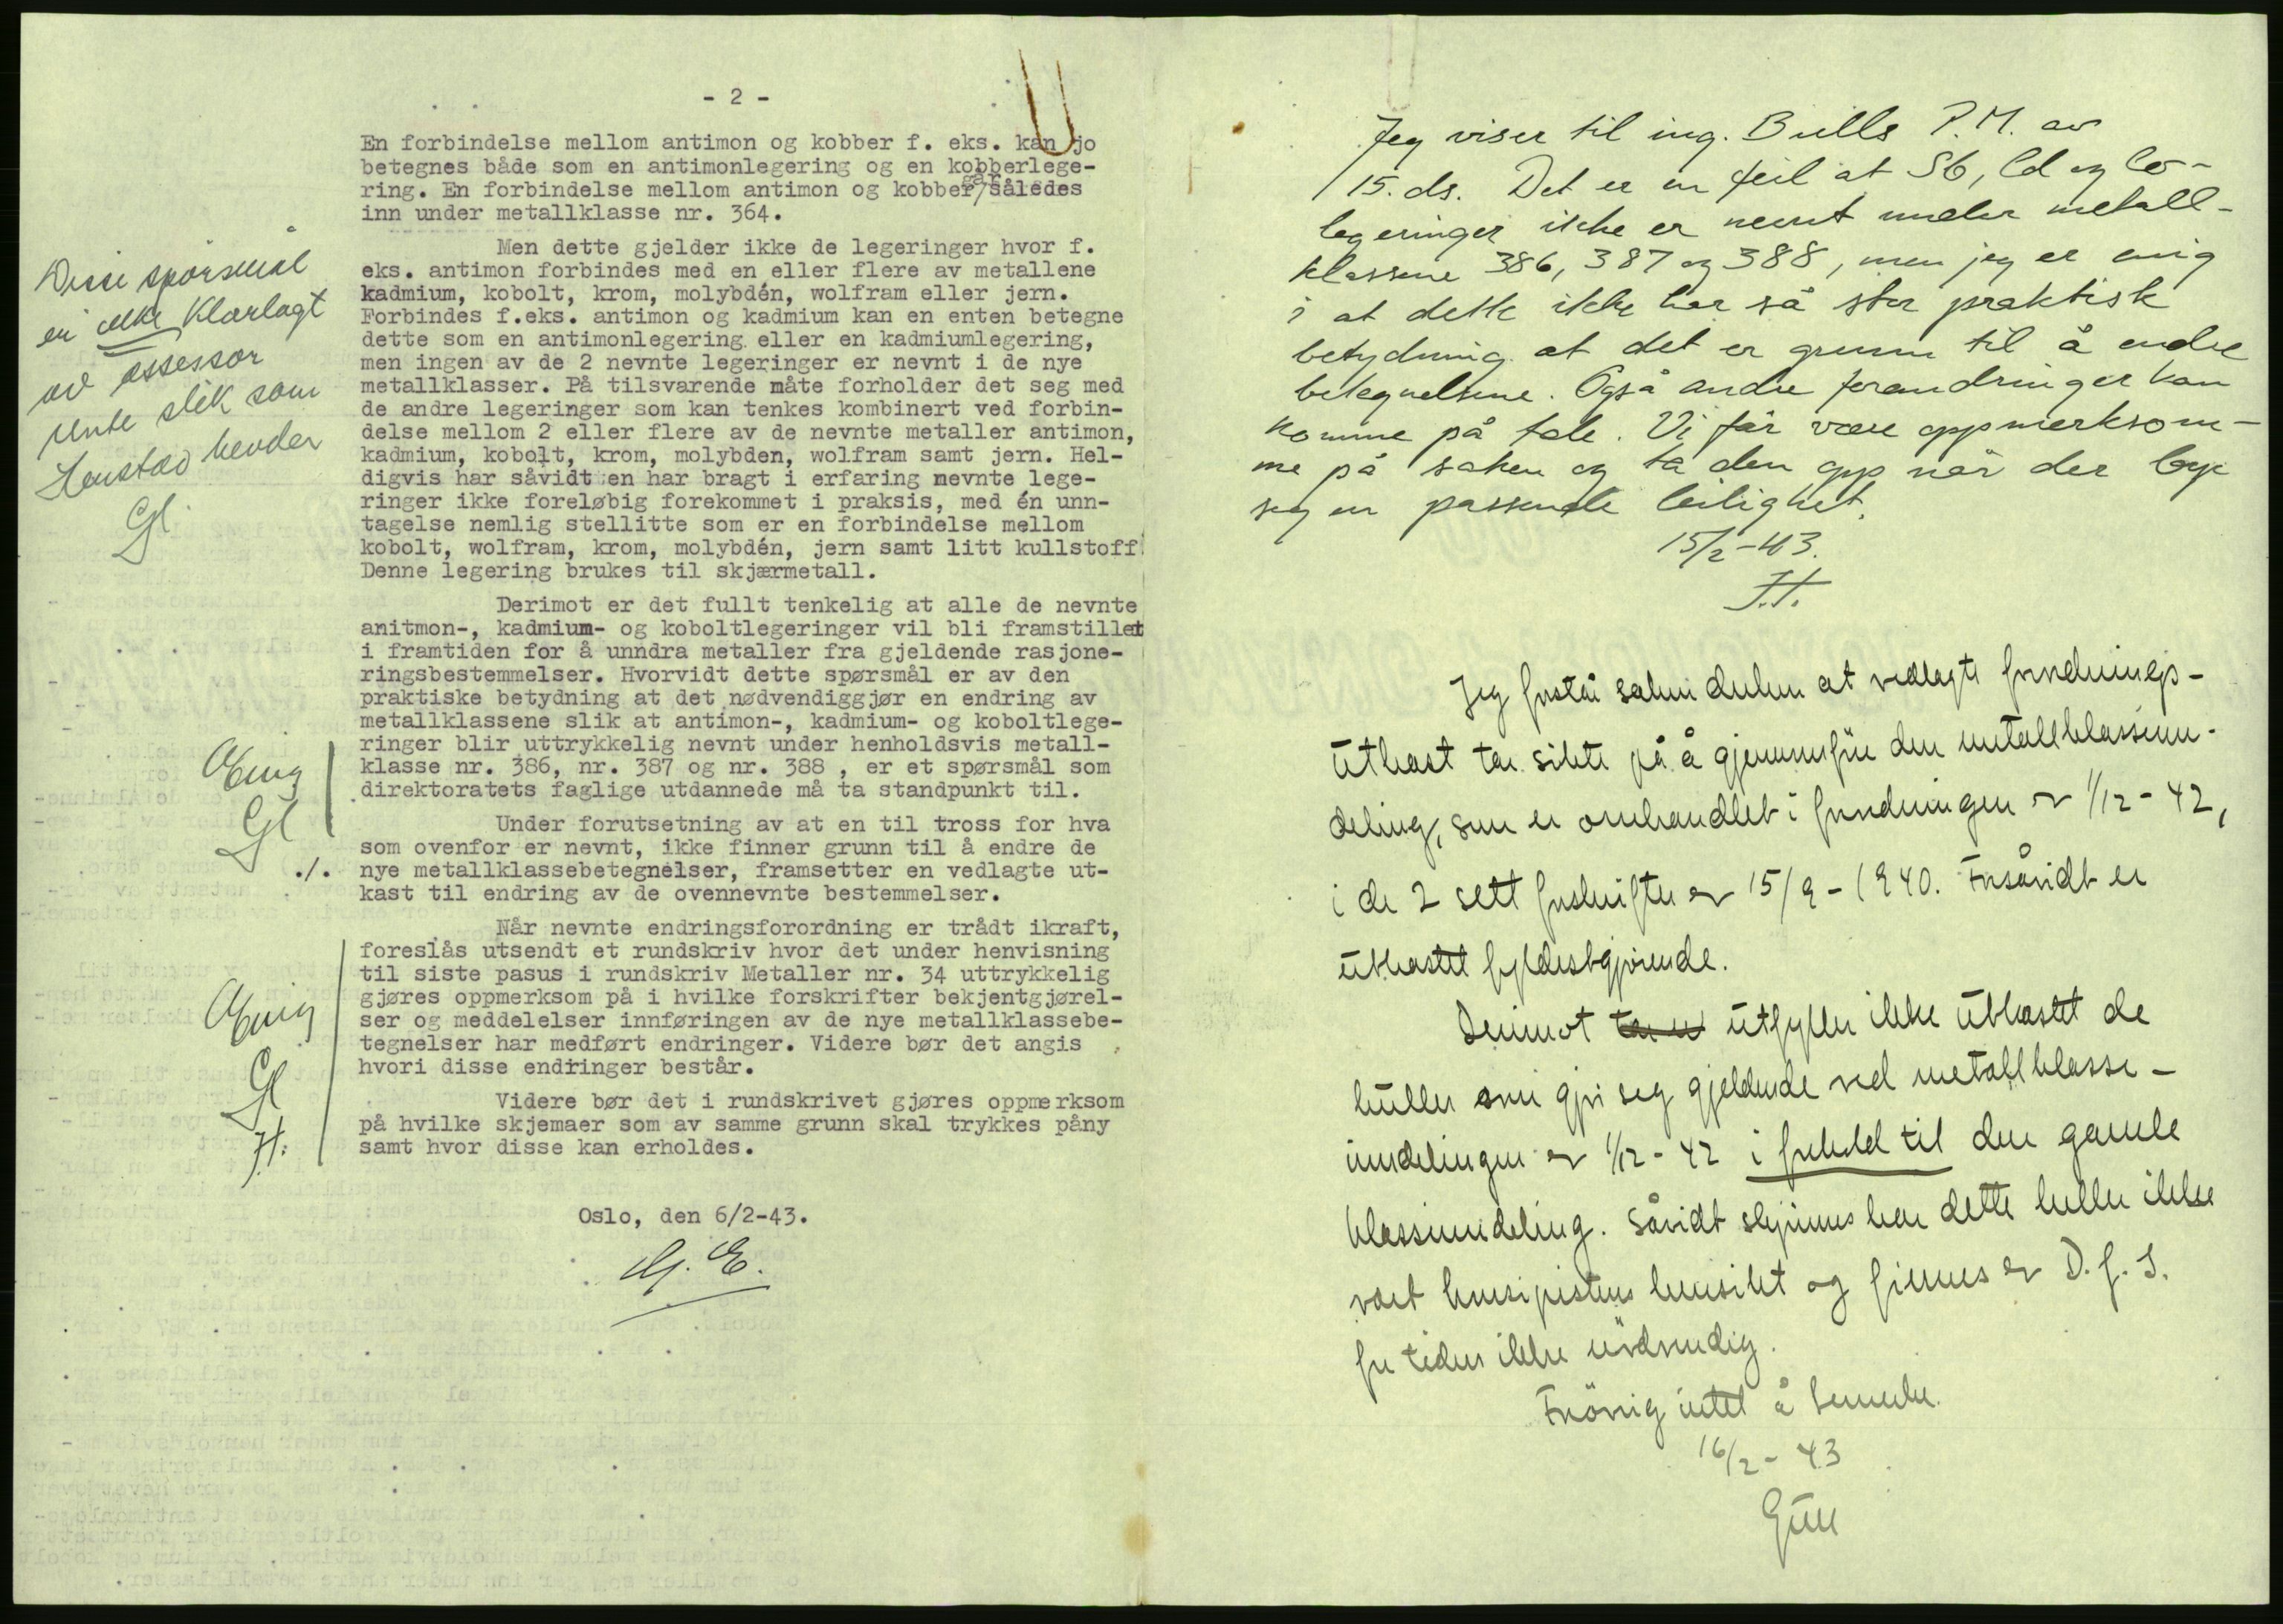 - 2 -
En forbindelse mellom antimon og kobber f. eks. kan jo
betegnes både som en antimonlegering og en kobberlege-
ring. En forbindelse mellom antimon og kobber/går således
inn under metallklasse nr. 364.
Men dette gjelder ikke de legeringer hvor f.
eks. antimon forbindes med en eller flere av metallene
kadmium, kobolt, krom, molybdén, wolfram eller jern.
Forbindes f.eks. antimon og kadmium kan en enten betegne
dette som en antimonlegering eller en kadmiumlegering,
men ingen av de 2 nevnte legeringer er nevnt i de nye
metallklasser. På tilsvarende måte forholder det seg med
de andre legeringer som kan tenkes kombinert ved forbin-
delse mellom 2 eller flere av de nevnte metaller antimon,
kadmium, kobolt, krom, molybden, wolfram samt jern. Hel-
digvis har såvidt en har bragt i erfaring nevnte lege-
ringer ikke foreløbig forekommet i praksis, med én unn-
tagelse nemlig stellitte som er en forbindelse mellom
kobolt, wolfram, krom, molybdén, jern samt litt kullstoff.
Denne legering brukes til skjærmetall.
Derimot er det fullt tenkelig at alle de nevnte
anitmon-, kadmium- og koboltlegeringer vil bli framstillet
i framtiden for å unndra metaller fra gjeldende rasjone-
ringsbestemmelser. Hvorvidt dette spørsmål er av den
praktiske betydning at det nødvendiggjør en endring av
metallklassene slik at antimon-, kadmium- og koboltlege-
ringer blir uttrykkelig nevnt under henholdsvis metall-
klasse nr. 386, nr. 387 og nr. 388 , er et spørsmål som
direktoratets faglige utdannede må ta standpunkt til.
Under forutsetning av at en til tross for hva
som ovenfor er nevnt, ikke finner grunn til å endre de
./. nye metallklassebetegnelser, framsetter en vedlagte ut-
kast til endring av de ovennevnte bestemmelser.
Når nevnte endringsforordning er trådt ikraft,
foreslås utsendt et rundskriv hvor det under henvisning
til siste pasus i rundskriv Metaller nr. 34 uttrykkelig
gjøres oppmerksom på i hvilke forskrifter bekjentgjørel-
ser og meddelelser innføringen av de nye metallklassebe-
tegnelser har medført endringer. Videre bør det angis
hvori disse endringer består.
Videre bør det i rundskrivet gjøres oppmerksom
på hvilke skjemaer som av samme grunn skal trykkes påny
samt hvor disse kan erholdes.
Oslo, den 6/2-43.
Disse spörsmål
er ikke klarlagt
av assessor
slik som
Hanstad hevder
Gl.
Enig
Gl
Enig
Gl
J.H.
Jeg viser til ing. Bulls P.M. av
15. ds. Det er en feil at Sb, Cd og Co-
legeringer ikke er nevnt under metall-
klassene 386, 387 og 388, men jeg er enig
i at dette ikke har så stor praktisk
betydning at det er grunn til å endre
betegnelsene. Også andre forandringer kan
komme på tale. Vi får være oppmerksom-
me på saken og ta den opp når der byr
seg en passende leilighet.
15/2-43.
J.H.
Jeg forstår saluni dulun at vedlagte forordnings-
utkast tar sikte på å gjennomføre den metallklasseinn-
deling, som er omhandlet i forordningen av 1/12-42,
i de 2 sett forskrifter av 15/9-1940. Forsåvidt er
utkastet fyldestgjörende.
Derimot utfyller ikke utkastet de
huller som gjør seg gjeldende ved metallklasse-
inndelingen av 1/12-42 i forhold til den gamle
klasseinndeling. Såvidt skjönnes har dette heller ikke
vært hensikt og finnes av D.f.I.
for tiden ikke nödvendig.
Forövrig intet å bemerke.
16/2-43